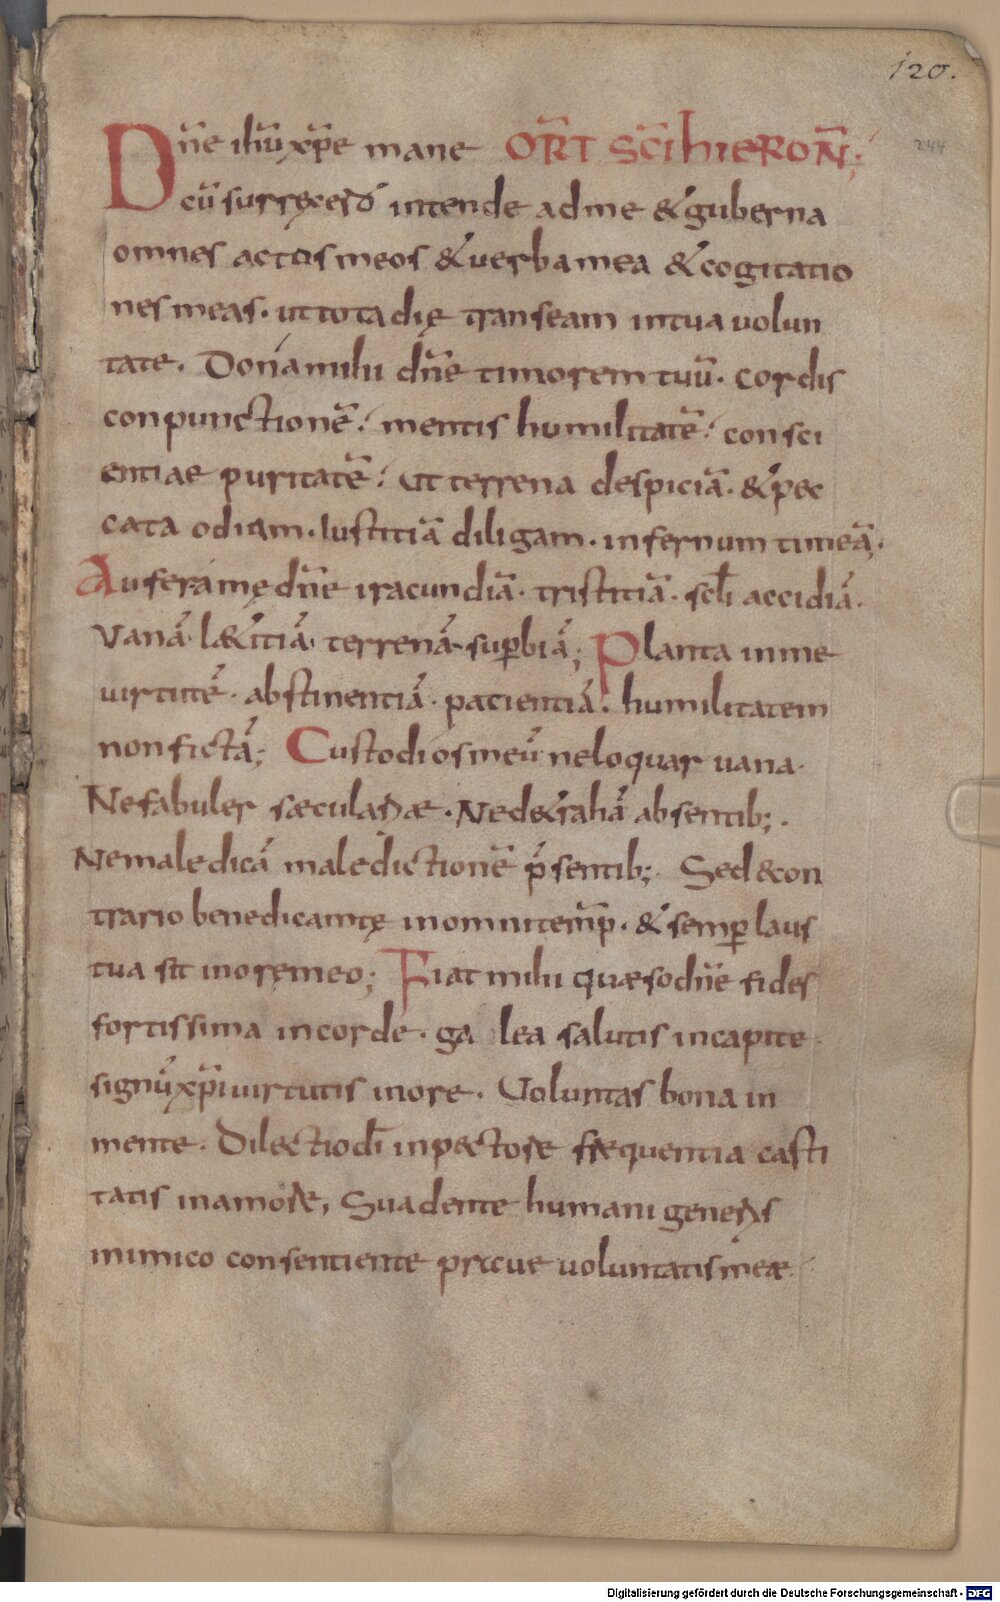 120.
Dn̄e ihū xp̄e mane OR̄T SC̄I hIERON̄;
244
cū surręxero intende ad me & guberna
omnes actus meos & uerba mea & cogitatio
nes meas· ut tota dię transeam in tua uolun
tate· Dona mihi dn̄e timorem tuū· cordis
conpunctionē· mentis humilitatē· consci
entiae puritatē· Ut terrena despiciā· & pec
cata odiam· Iustitiā diligam· infernum timeā;
Aufer a mę dn̄e iracundiā· tristitiā· sc̄l̄i accidiā·
Vanā· l&itiā· terrenā· sup̄biā; Planta in me
uirtutē· abstinentiā· pacientiā· humilitatem
non fictā; Custodi os meū ne loquar uana·
Ne fabuler sæcularia· Ne d&rahā absentib;·
Ne maledicā maledictionē p̄sentib;· Sed & con
trario benedicam tę in omni temp̄· & semp̄ laus
tua sit in oręmeo; Fiat mihi quæso dn̄e fides
fortissima in corde· ga lea salutis in capite·
signū xp̄i uirtutis in ore· Voluntas bona in
mente· Dilectio dī in pectore frequentia casti
tatis in amore, Suadente humani generis
inimico consentiente prauę uoluntatis meæ
Digitalisierung gefördert durch die Deutsche Forschungsgemeinschaft - DFG